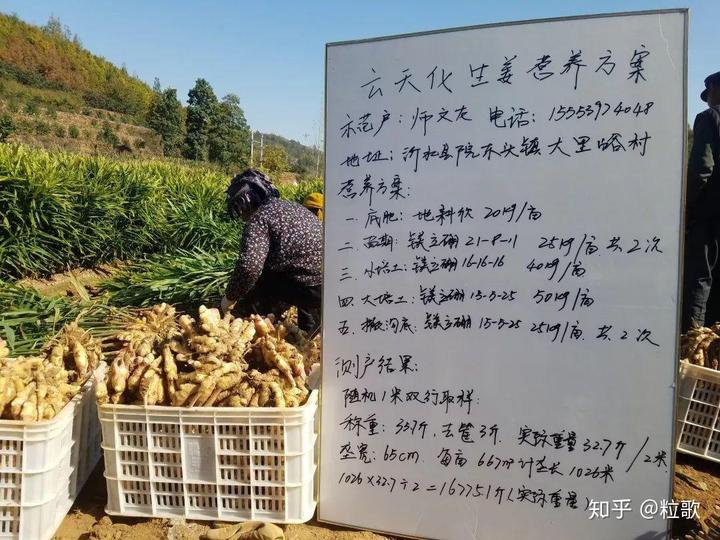 云天化生姜营养方案
示范户：师文友 电话：15553974048
地址：沂水县院东头镇大里峪村
营养方案：
一、底肥：地料钦 20kg/亩
二、苗期：镁立硼 21-8-11 25kg/亩 共2次
三、小培土：镁立硼 16-16-16 40kg/亩
四、大培土：镁立硼 15-5-25 50kg/亩
五、搬沟底：镁立硼 15-5-25 25kg/亩 共2次
测产结果：
随机1米双行取样：
称重：35.7斤，去筐3斤，实际重量32.7斤/2米
垄宽：65cm，每亩667m²计垄长1026米
1026×32.7÷2=16775.1斤（实际重量）
知乎 @粒歌